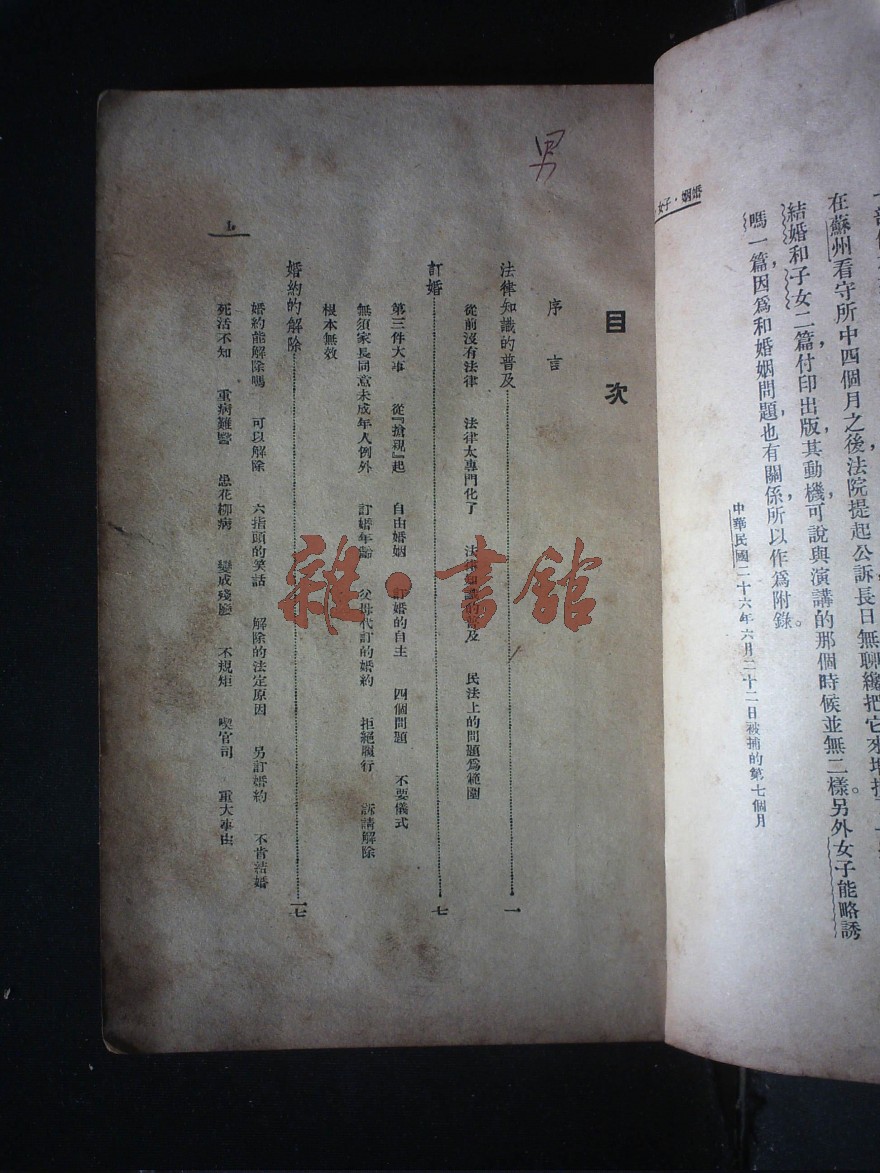 婚姻・子女・
在蘇州看守所中四個月之後法院提起公訴長日無聊纔把它來增
結婚和子女二篇付印出版其動機可說與演講的那個時候並無二樣另外女子能略誘
嗎一篇，因爲和婚姻問題也有關係所以作爲附錄。
中華民國二十六年六月二十二日被捕的第七個月
男
目次
序言
法律知識的普及 一
從前沒有法律 法律太專門化了 法律知識的普及 民法上的問題爲範圍
訂婚 七
第三件大事 從『搶親』起 自由婚姻 訂婚的自主 四個問題 不要儀式
無須家長同意未成年人例外 訂婚年齡 父母代訂的婚約 拒絕履行 訴請解除
根本無效
婚約的解除 一七
婚約能解除嗎 可以解除 六指頭的笑話 解除的法定原因 另訂婚約 不肯結婚
死活不知 重病難醫 患花柳病 變成殘廢 不規矩 喫官司 重大事由
雜・書館